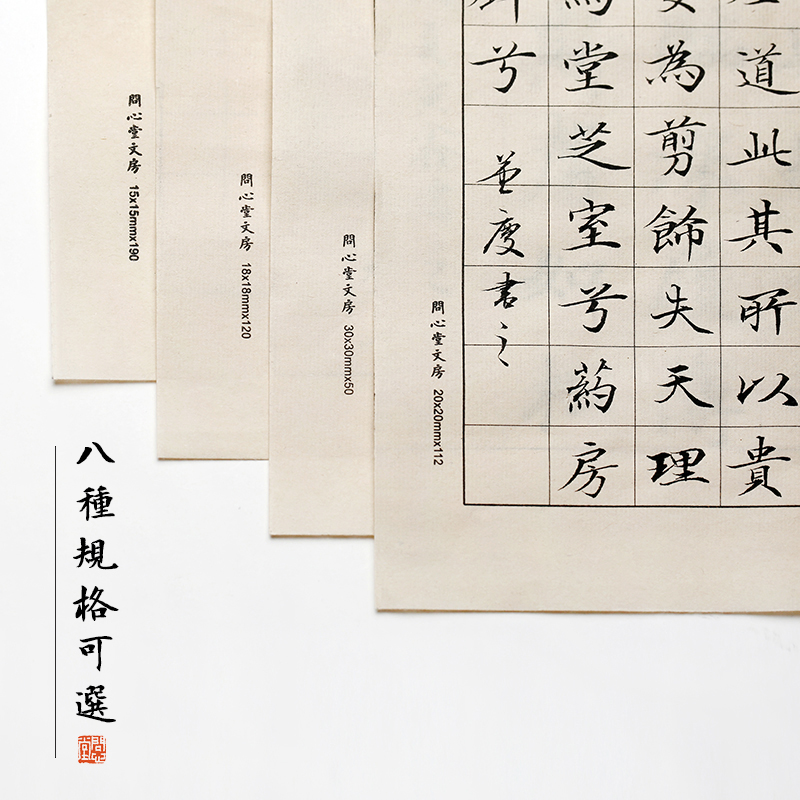 道此其所以貴
為剪飾失天理
堂芝室兮葯房
兮
書之
問心堂文房 20x20mmx112
問心堂文房 30x30mmx50
問心堂文房 18x18mmx120
問心堂文房 15x15mmx190
八種規格可選
問心堂